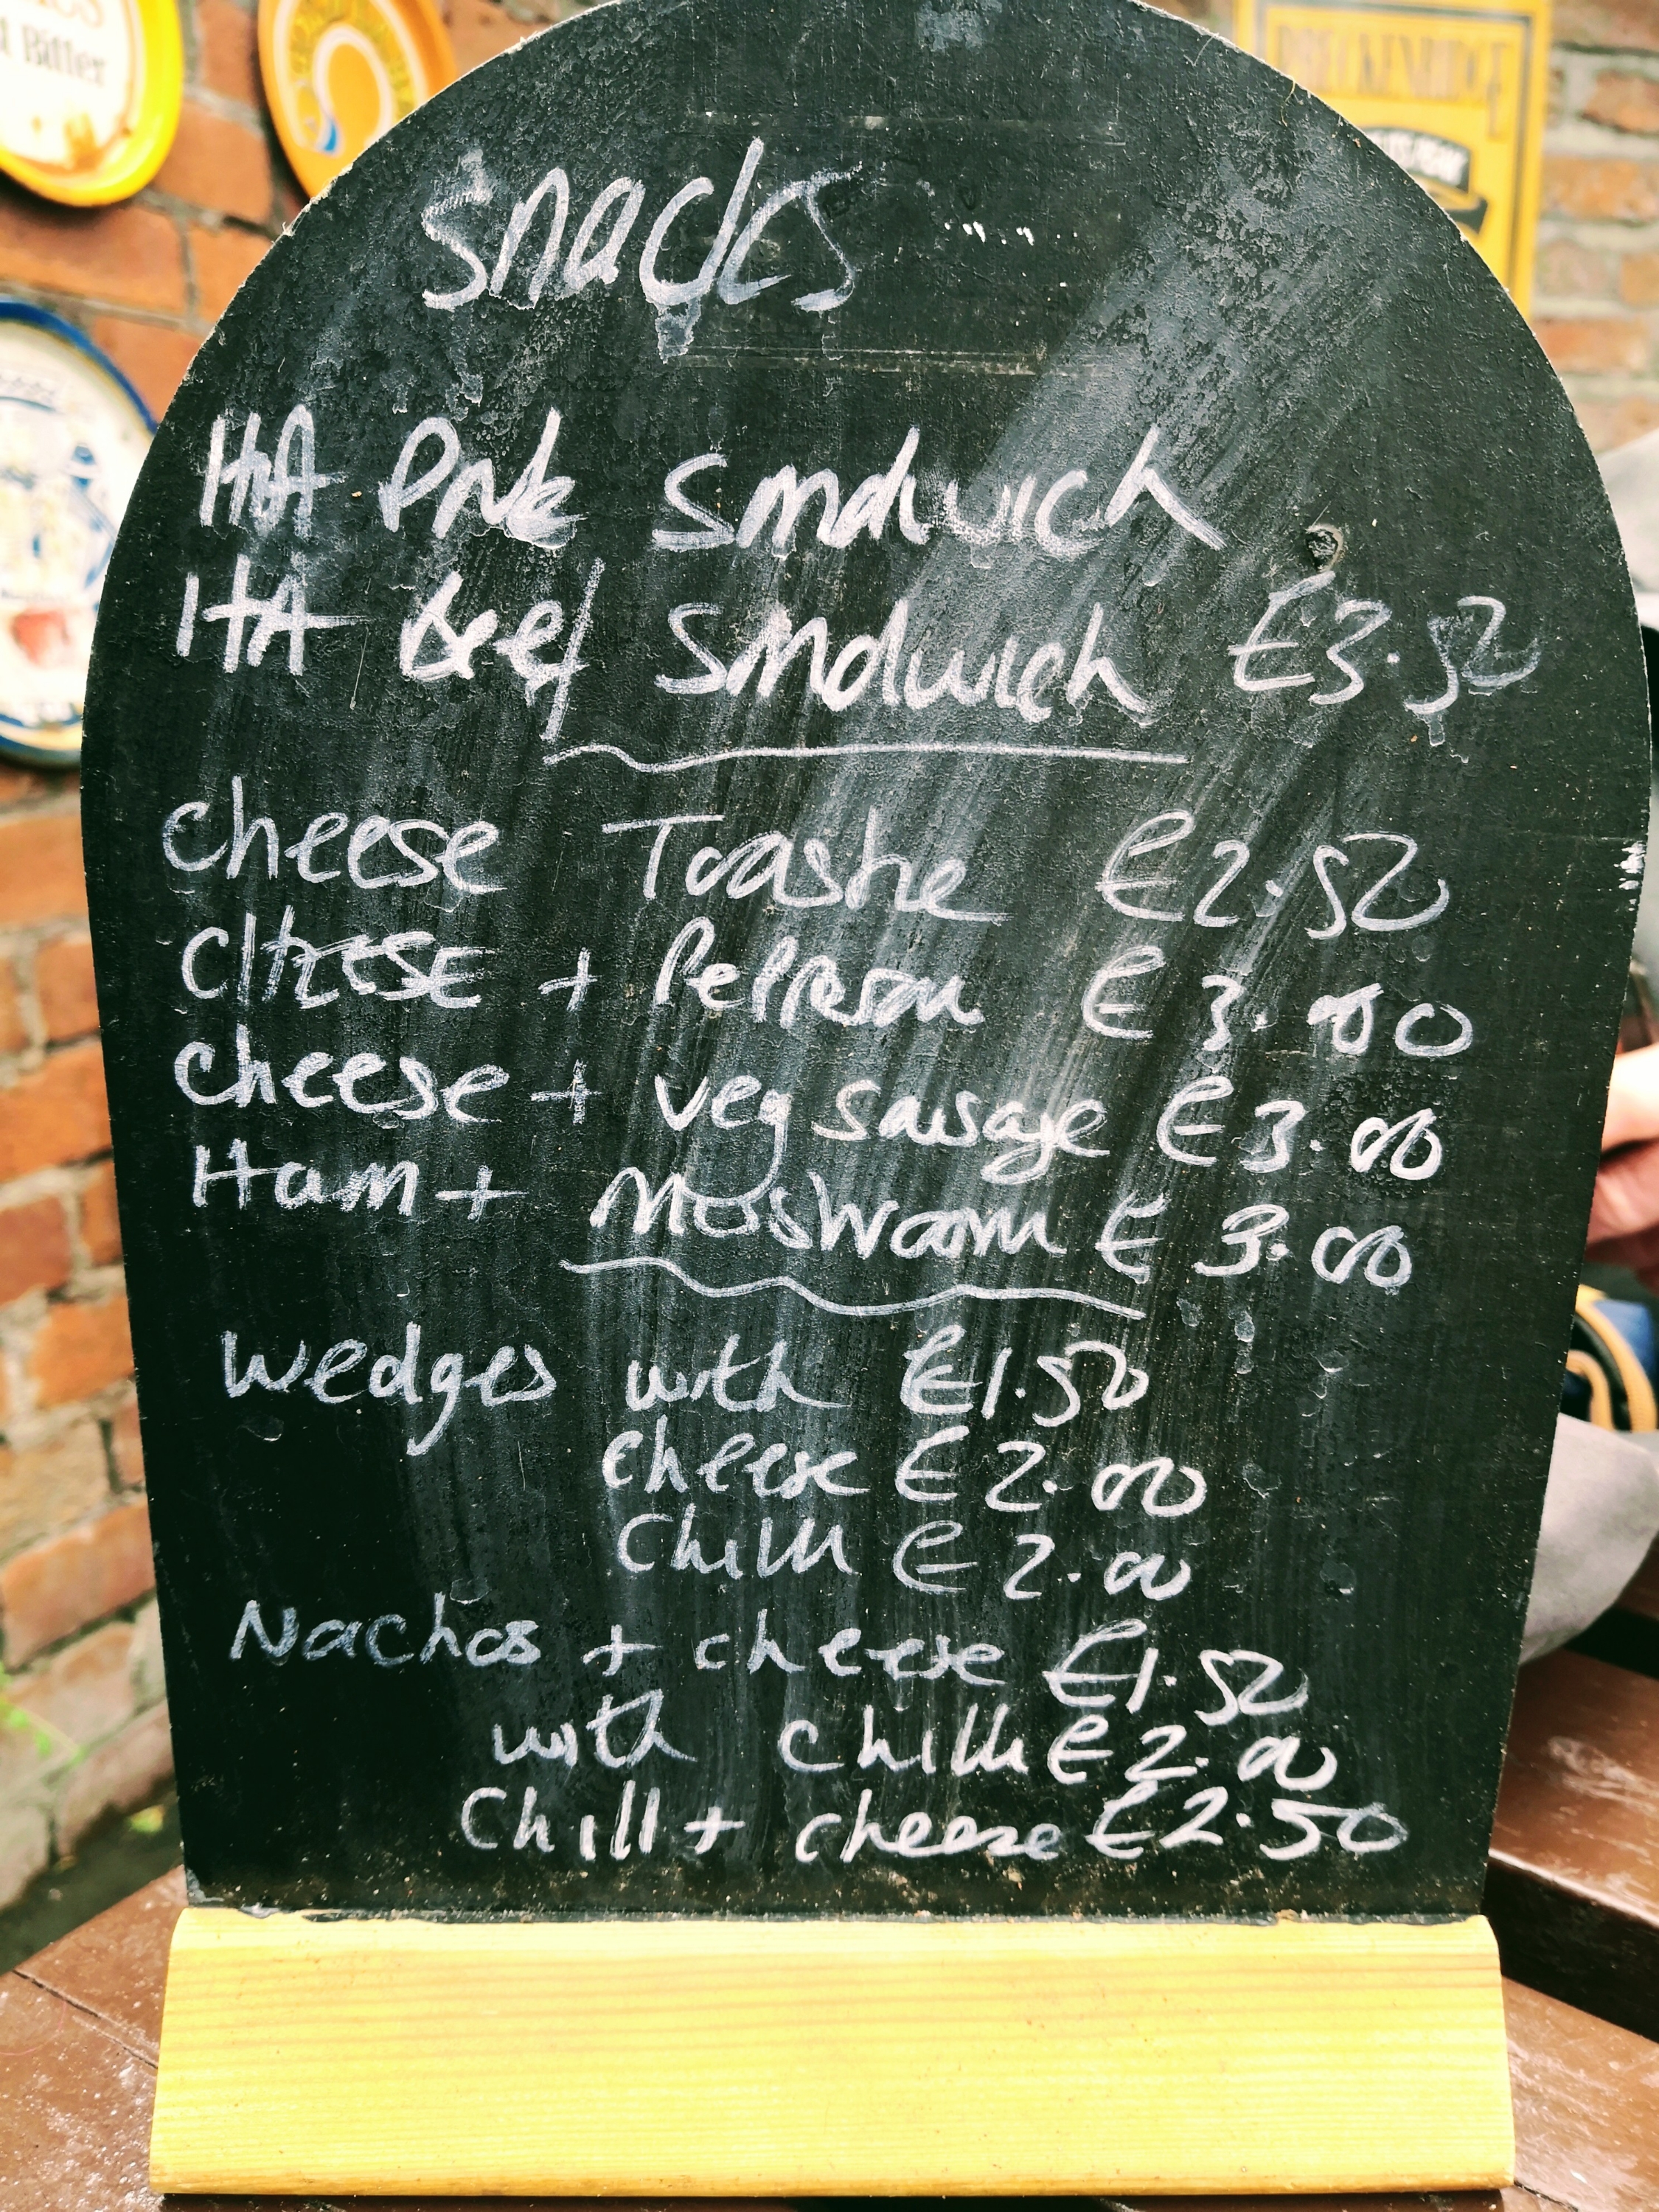 d Bitter
BRECKENRIDGE
Snacks
Hot Pork Sandwich
Hot Beef Sandwich £3.50
cheese Toastie £2.50
Cheese + Pepperoni £3.00
cheese + veg sausage £3.00
Ham + Mushroom £3.00
Wedges with £1.50
cheese £2.00
Chilli £2.00
Nachos + cheese £1.50
with chilli £2.00
Chilli + cheese £2.50